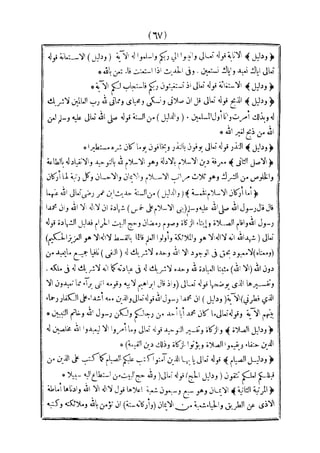 (٦٧)
﴿ودليل﴾ الانابة قوله تعالى وانيبوا الى ربكم واسلموا له الآية (ودليل) الاستعانة قوله
تعالى اياك نعبد واياك نستعين. وفى الحديث اذا استعنت فاستعن بالله *
﴿ودليل﴾ الاستغاثة قوله تعالى اذ تستغيثون ربكم فاستجاب لكم الآية *
﴿ودليل﴾ الذبح قوله تعالى قل ان صلاتى ونسكى ومحياى ومماتى لله رب العالمين لاشريك
له وبذلك امرت وانا اول المسلمين - (ودليل) من السنة قوله صلى الله تعالى عليه وسلم لعن
الله من ذبح لغير الله *
﴿ودليل﴾ النذر قوله تعالى يوفون بالنذر ويخافون يوما كان شره مستطيرا *
﴿الاصل الثانى﴾ معرفة دين الاسلام بالادلة وهو الاسلام لله بالتوحيد والانقياد له بالطاعة
والخلوص من الشرك وهو ثلاث مراتب الاسلام والايمان والاحسان وكل رتبة لها اركان
﴿أما أركان الاسلام فخمسة﴾ (والدليل) من السنة حديث ابن عمر رضى تعالى الله عنهما
قال قال رسول الله صلى الله عليه وسلم (بنى الاسلام على خمس) شهادة ان لا اله الا الله وان محمدا
رسول الله واقام الصلاة وإيتاء الزكاة وصوم رمضان وحج البيت الحرام فدليل الشهادة قوله
تعالى (شهد الله انه لا اله الا هو والملائكة وأولوا العلم قائما بالقسط لا اله الا هو العزيز الحكيم)
(ومعناه) لامعبود بحق فى الوجود الا الله وحده لاشريك له (النفى) نفيا جميع مايعبد من
دون الله (الا الله) مثبتا العبادة لله وحده لاشريك له فى عبادته كما انه لاشريك له فى ملكه.
وتفسيرها الذى يوضحها قوله تعالى (واذ قال ابراهيم لابيه وقومه اننى براء مما تعبدون الا
الذى فطرنى) الآية (ودليل) ان محمدا رسول الله قوله تعالى والذين معه أشداء على الكفار رحماء
بينهم الآية وقوله تعالى ما كان محمد أبا أحد من رجالكم ولكن رسول الله وخاتم النبيين *
﴿ودليل الصلاة﴾ والزكاة وتفسير التوحيد قوله تعالى وما أمروا الا ليعبدوا الله مخلصين له
الدين حنفاء ويقيموا الصلاة ويؤتوا الزكاة وذلك دين القيمة *
﴿ودليل الصيام﴾ قوله تعالى ياايها الذين آمنوا كتب عليكم الصيام كما كتب على الذين من
قبلكم لعلكم تتقون (ودليل الحج) قوله تعالى (ولله حج البيت من استطاع اليه سبيلا *
﴿المرتبة الثانية﴾ الايمان وهو سبع وسبعون شعبة اعلاها قول لا اله الا الله وادناها اماطة
الاذى عن الطريق والحياء شعبة من الايمان (وأركانه ستة) ان تؤمن بالله وملائكته وكتبه